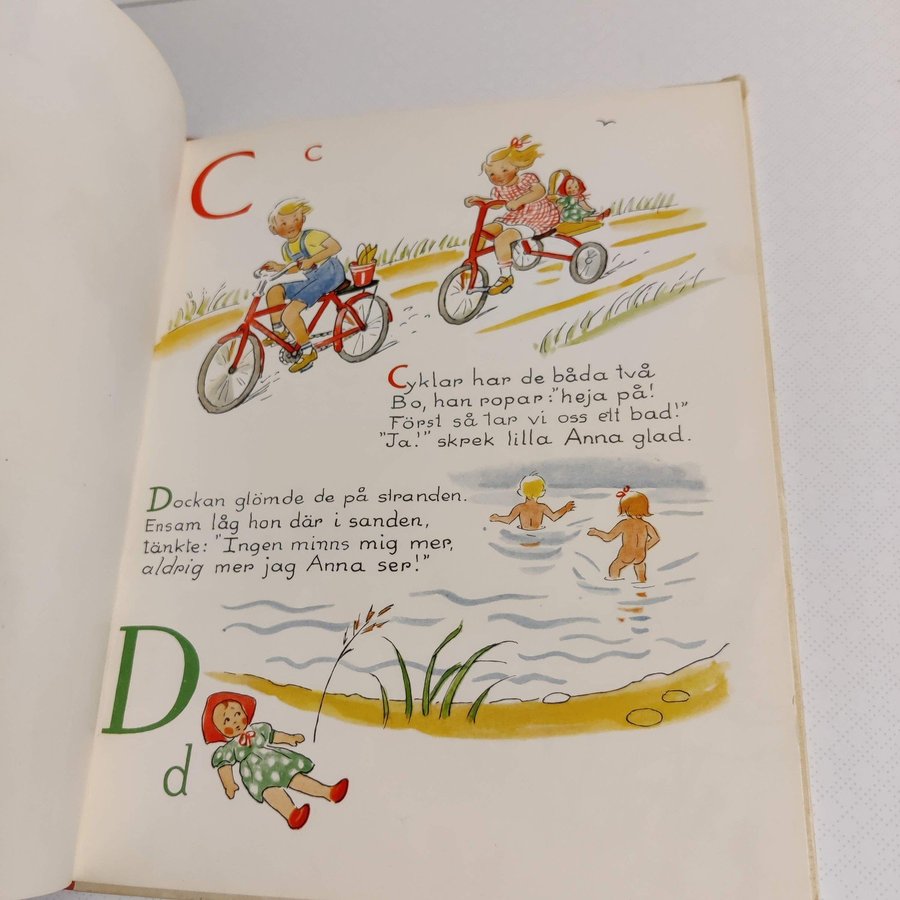 C c
Cyklar har de båda två
Bo, han ropar: "heja på!
Först så tar vi oss ett bad!"
"Ja!" skrek lilla Anna glad.
Dockan glömde de på stranden.
Ensam låg hon där i sanden,
tänkte: "Ingen minns mig mer,
aldrig mer jag Anna ser!"
D
d